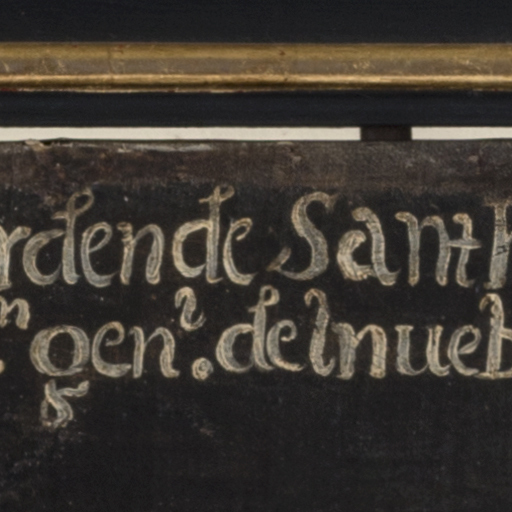 rdende Santi
m gen.l del nueb